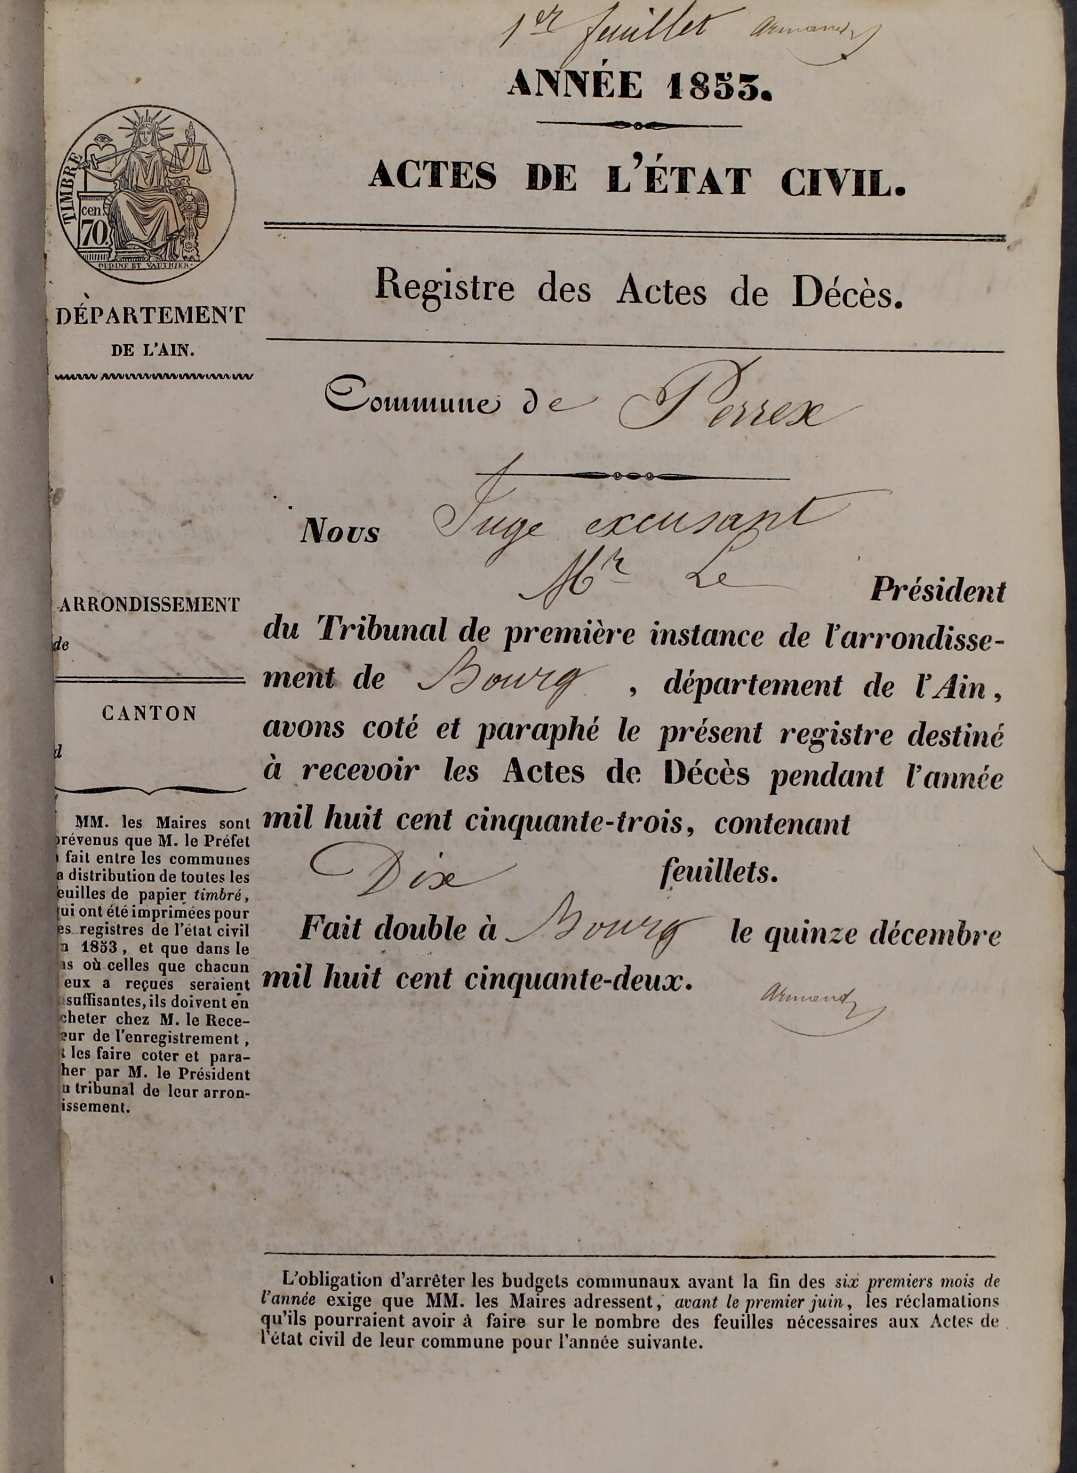 1er feuillet Armand
ANNÉE 1853.
ACTES DE L'ÉTAT CIVIL.
TIMBRE
cen
70.
DÉPARTEMENT
DE L'AIN.
Registre des Actes de Décès.
Commune de Perrex
Nous Juge excusant
Mr Le Président
du Tribunal de première instance de l'arrondisse-
ment de Bourg, département de l'Ain,
avons coté et paraphé le présent registre destiné
à recevoir les Actes de Décès pendant l'année
mil huit cent cinquante-trois, contenant
Dix feuillets.
Fait double à Bourg le quinze décembre
mil huit cent cinquante-deux.
Armand
ARRONDISSEMENT
de
CANTON
d
MM. les Maires sont
prévenus que M. le Préfet
fait entre les communes
a distribution de toutes les
feuilles de papier timbré,
qui ont été imprimées pour
es registres de l'état civil
n 1853, et que dans le
as où celles que chacun
eux a reçues seraient
suffisantes, ils doivent en
cheter chez M. le Rece-
eur de l'enregistrement,
t les faire coter et para-
her par M. le Président
u tribunal de leur arron-
issement.
L'obligation d'arrêter les budgets communaux avant la fin des six premiers mois de
l'année exige que MM. les Maires adressent, avant le premier juin, les réclamations
qu'ils pourraient avoir à faire sur le nombre des feuilles nécessaires aux Actes de
l'état civil de leur commune pour l'année suivante.